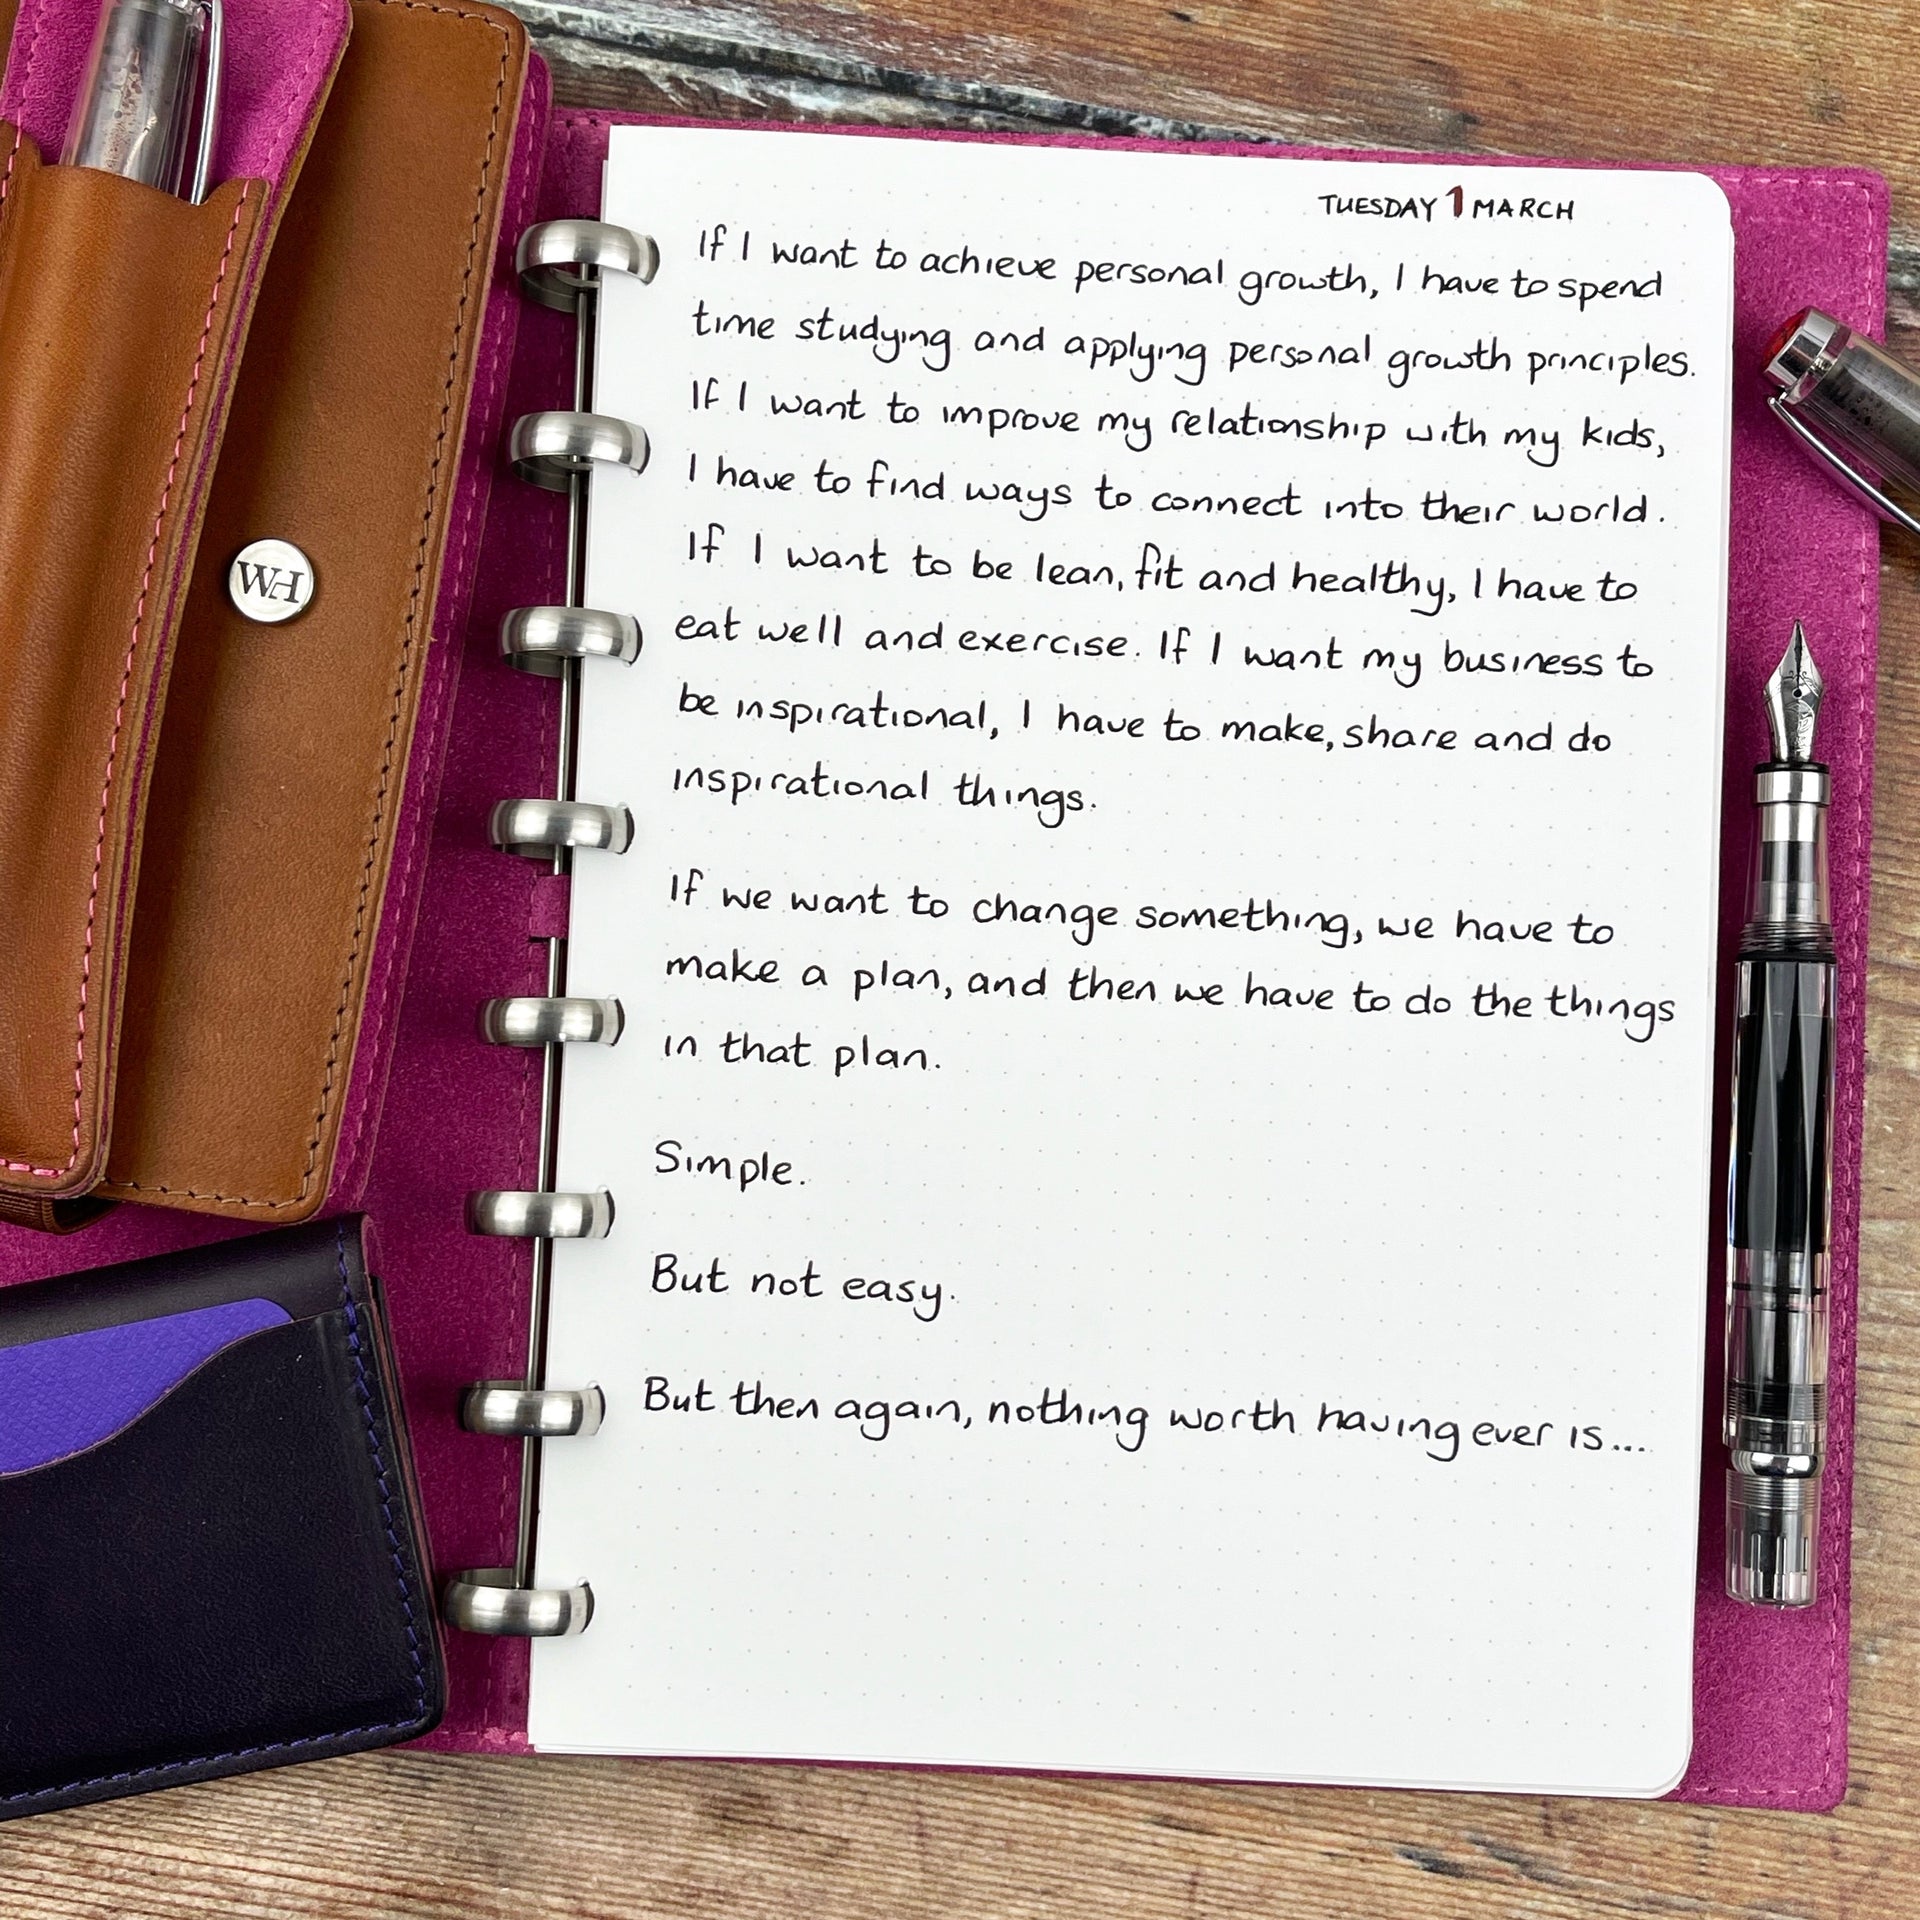 WH
TUESDAY 1 MARCH
If I want to achieve personal growth, I have to spend
time studying and applying personal growth principles.
If I want to improve my relationship with my kids,
I have to find ways to connect into their world.
If I want to be lean, fit and healthy, I have to
eat well and exercise. If I want my business to
be inspirational, I have to make, share and do
inspirational things.
If we want to change something, we have to
make a plan, and then we have to do the things
in that plan.
Simple.
But not easy.
But then again, nothing worth having ever is...